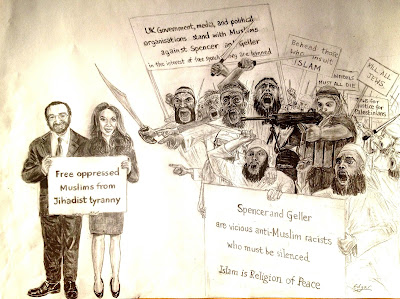 UK Government, media, and political
organisations stand with Muslims
against Spencer and Geller
in the interest of free speech they are banned
Behead those
who insult
ISLAM
INFIDELS
MUST ALL DIE
KILL ALL
JEWS
justice for
Palestinians
Free oppressed
Muslims from
Jihadist tyranny
Spencer and Geller
are vicious anti-Muslim racists
who must be silenced
Islam is Religion of Peace